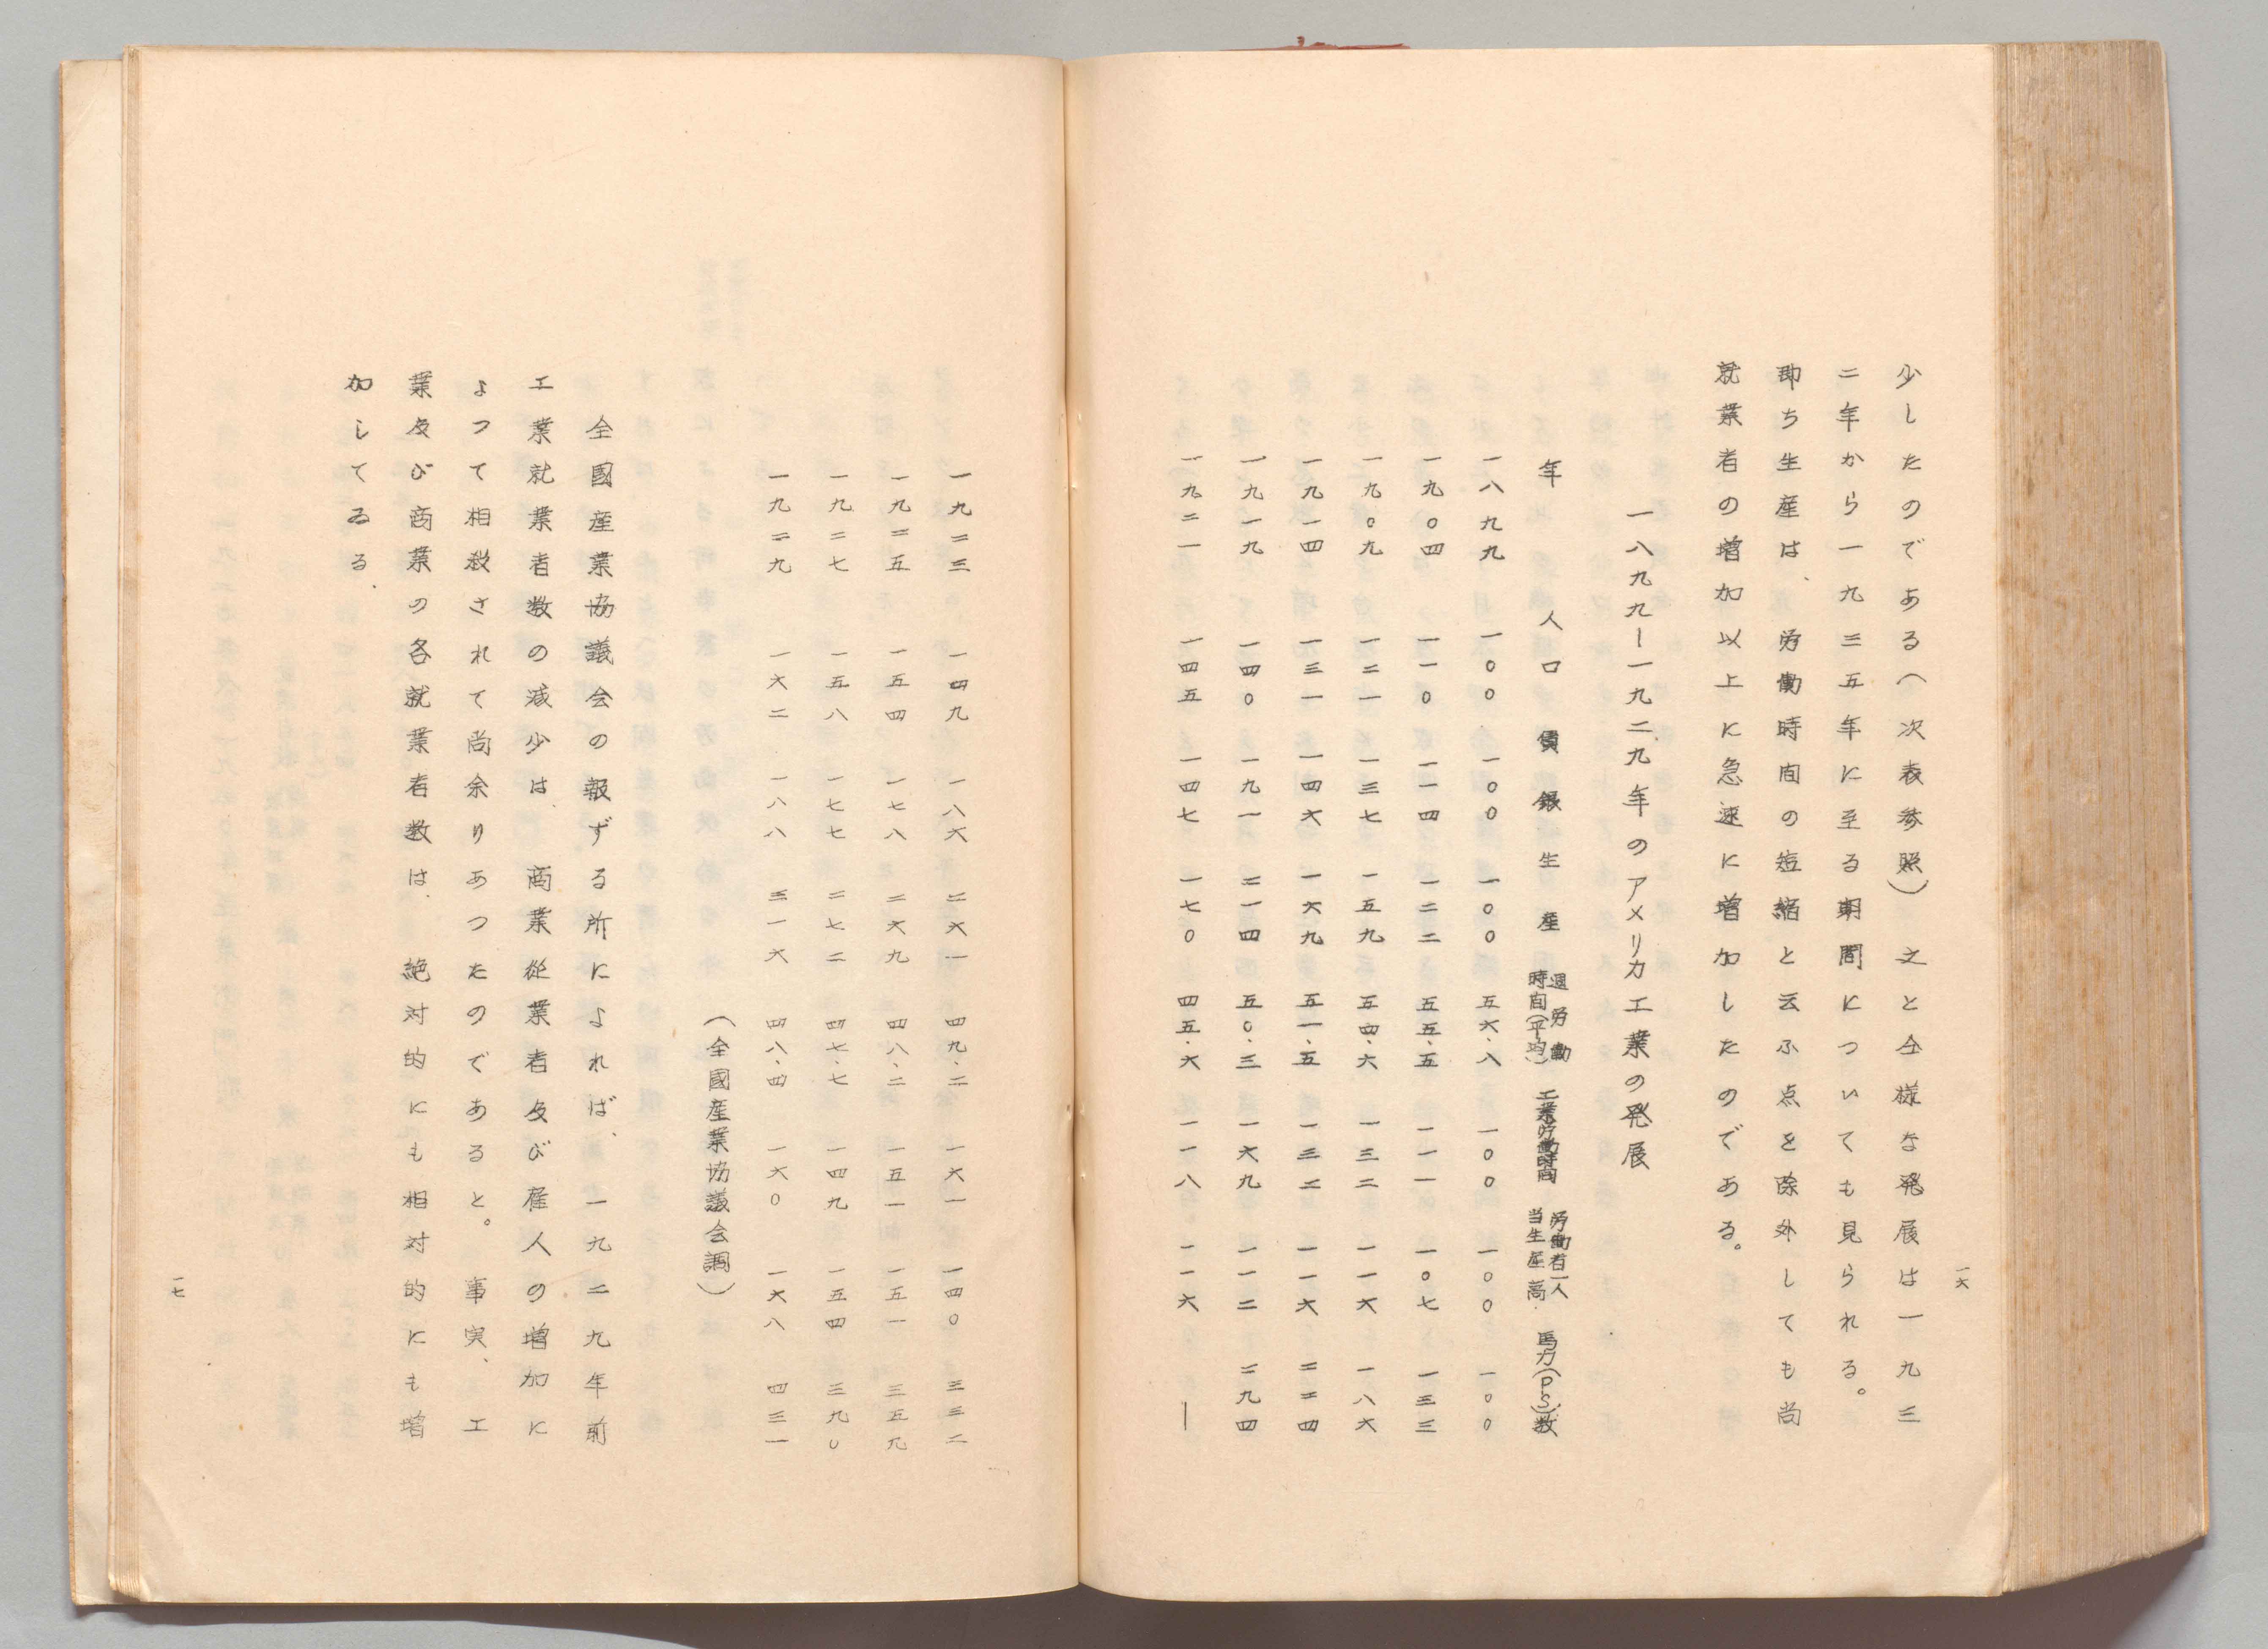 一六
少したのである(次表参照) 之と仝様な発展は一九三
二年から一九三五年に至る期間についても見られる。
即ち生産は、労働時間の短縮と云ふ点を除外しても尚
就業者の増加以上に急速に増加したのである。
一八九九ー一九二九年のアメリカ工業の発展
年 人口 賃銀 生産 週労働時間(平均) 工業労働時間 労働者一人当生産高 馬力(PS)数
一八九九 一〇〇 一〇〇 一〇〇 五六.八 一〇〇 一〇〇 一〇〇
一九〇四 一一〇 一一四 一二二 五五.五 一一一 一〇七 一三三
一九〇九 一二一 一三七 一五九 五四.六 一三二 一一六 一八六
一九一四 一三一 一四六 一六九 五一.五 一三二 一一六 二二四
一九一九 一四〇 一九一 二一四 五〇.三 一六九 一一二 二九四
一九二一 一四五 一四七 一七〇 四五.六 一一八 一一六 ー
一九二三 一四九 一八六 二六一 四九.二 一六一 一四〇 三三二
一九二五 一五四 一七八 二六九 四八.二 一五一 一五一 三五九
一九二七 一五八 一七七 二七二 四七.七 一四九 一五四 三九〇
一九二九 一六二 一八八 三一六 四八.四 一六〇 一六八 四三一
(全國産業協議会調)
全國産業協議会の報ずる所によれば、一九二九年前
工業就業者数の減少は、商業従業者及び雇人の増加に
よつて相殺されて尚余りあつたのであると。事実、工
業及び商業の各就業者数は、絶対的にも相対的にも増
加してゐる、
一七